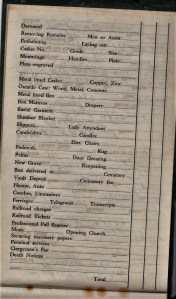 Deceased
Removing Remains Men to Assist
Embalming Laying out
Casket No. Grade Size
Mountings Handles Plate
Plate engraved
Metal lined Casket Copper, Zinc
Outside Case: Wood, Metal, Concrete
Metal lined Box
Box Mattress Drapery
Burial Garment
Slumber Blanket
Slippers Lady Attendant
Candelabra Candles
Doz. Chairs
Pedestals Rug
Palms Door Dressing
New Grave Reopening
Box delivered to Cemetery
Vault Deposit Cemetery fee
Hearse, Auto
Coaches, Limousines
Ferriage Telegrams Transcripts
Railroad charges
Railroad Tickets
Professional Pall Bearers
Music Opening Church
Securing necessary papers
Personal services
Clergyman's Fee
Death Notices
Total